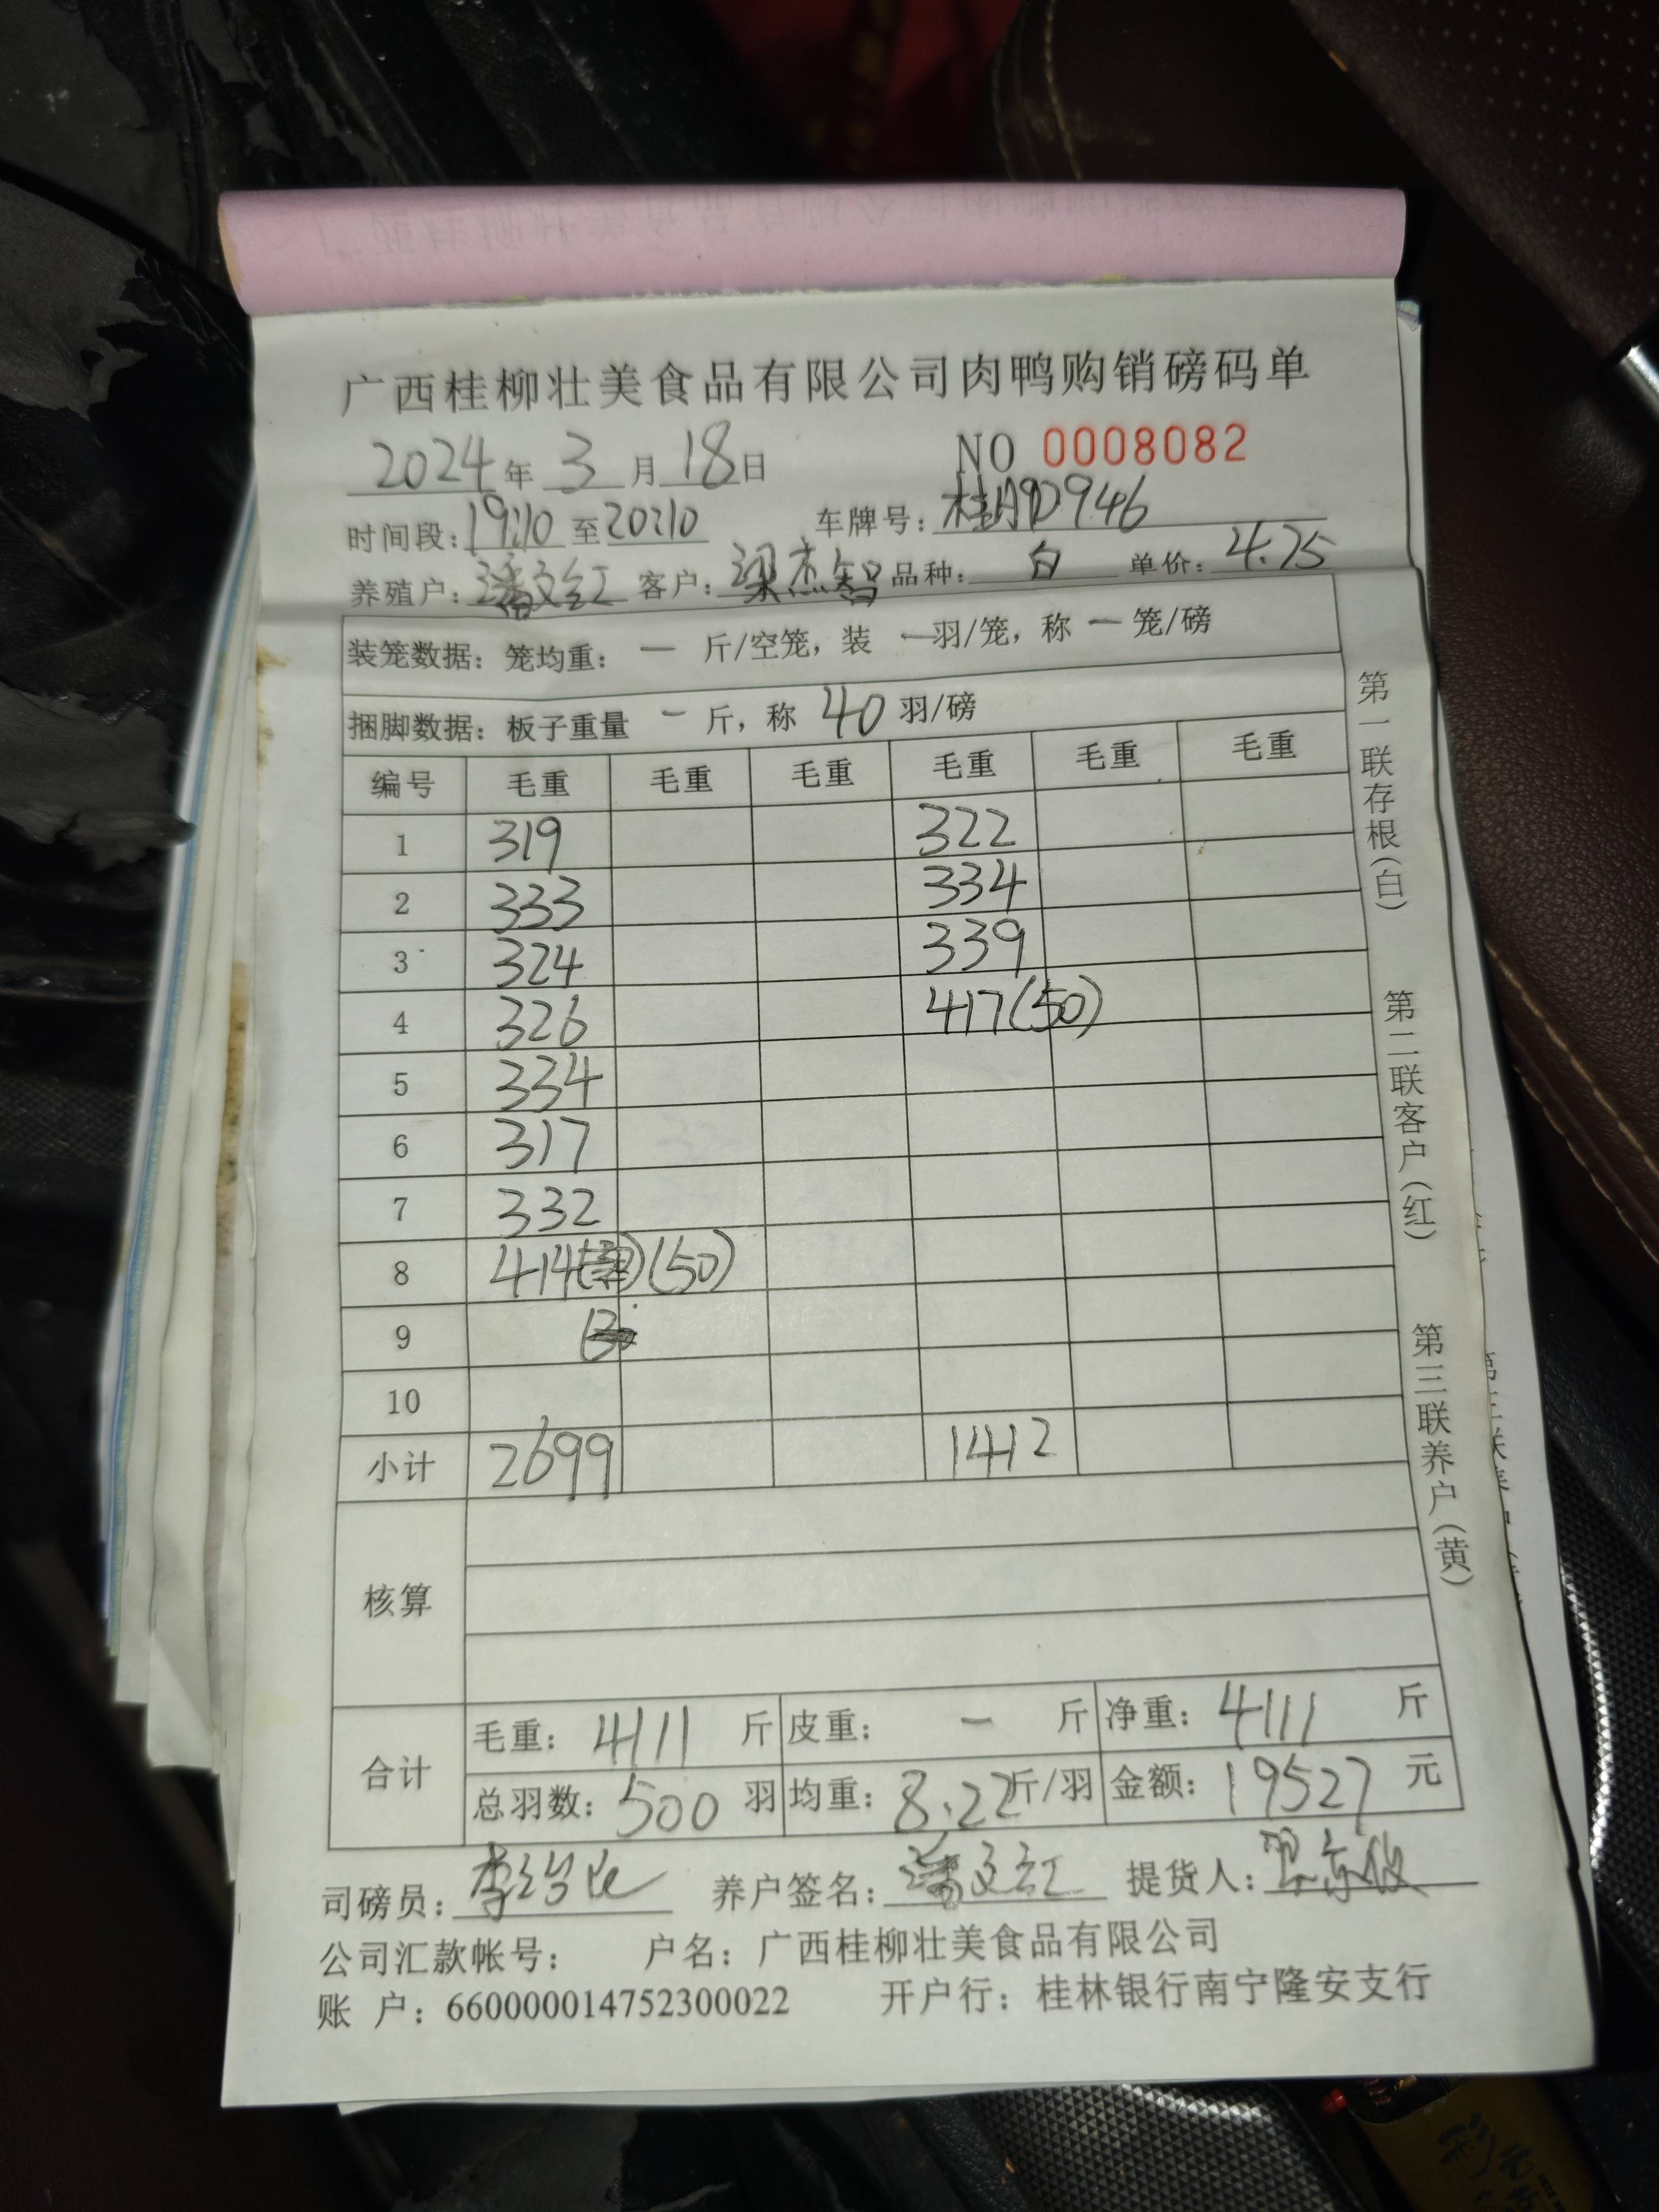 广西桂柳壮美食品有限公司肉鸭购销磅码单
2024年 3月18日 NO 0008082
时间段:19:10至20:10 车牌号:
养殖户:潘文红 客户:梁杰智 品种: 白 单价:4.75
装笼数据:笼均重: 一 斤/空笼,装 一羽/笼,称 一 笼/磅
捆脚数据:板子重量 一 斤,称 40 羽/磅
编号 毛重 毛重 毛重 毛重 毛重 毛重
1 319 322
2 333 334
3 324 339
4 326 417(50)
5 334
6 317
7 332
8 414 (50)
9
10
小计 2699 1412
核算
合计 毛重: 4111 斤 皮重: 一 斤 净重: 4111 斤
总羽数: 500 羽 均重: 8.22斤/羽 金额: 19527 元
司磅员: 养户签名:潘文红 提货人:
公司汇款帐号: 户名:广西桂柳壮美食品有限公司
账 户:660000014752300022 开户行:桂林银行南宁隆安支行
第一联存根(白) 第二联客户(红) 第三联养户(黄)